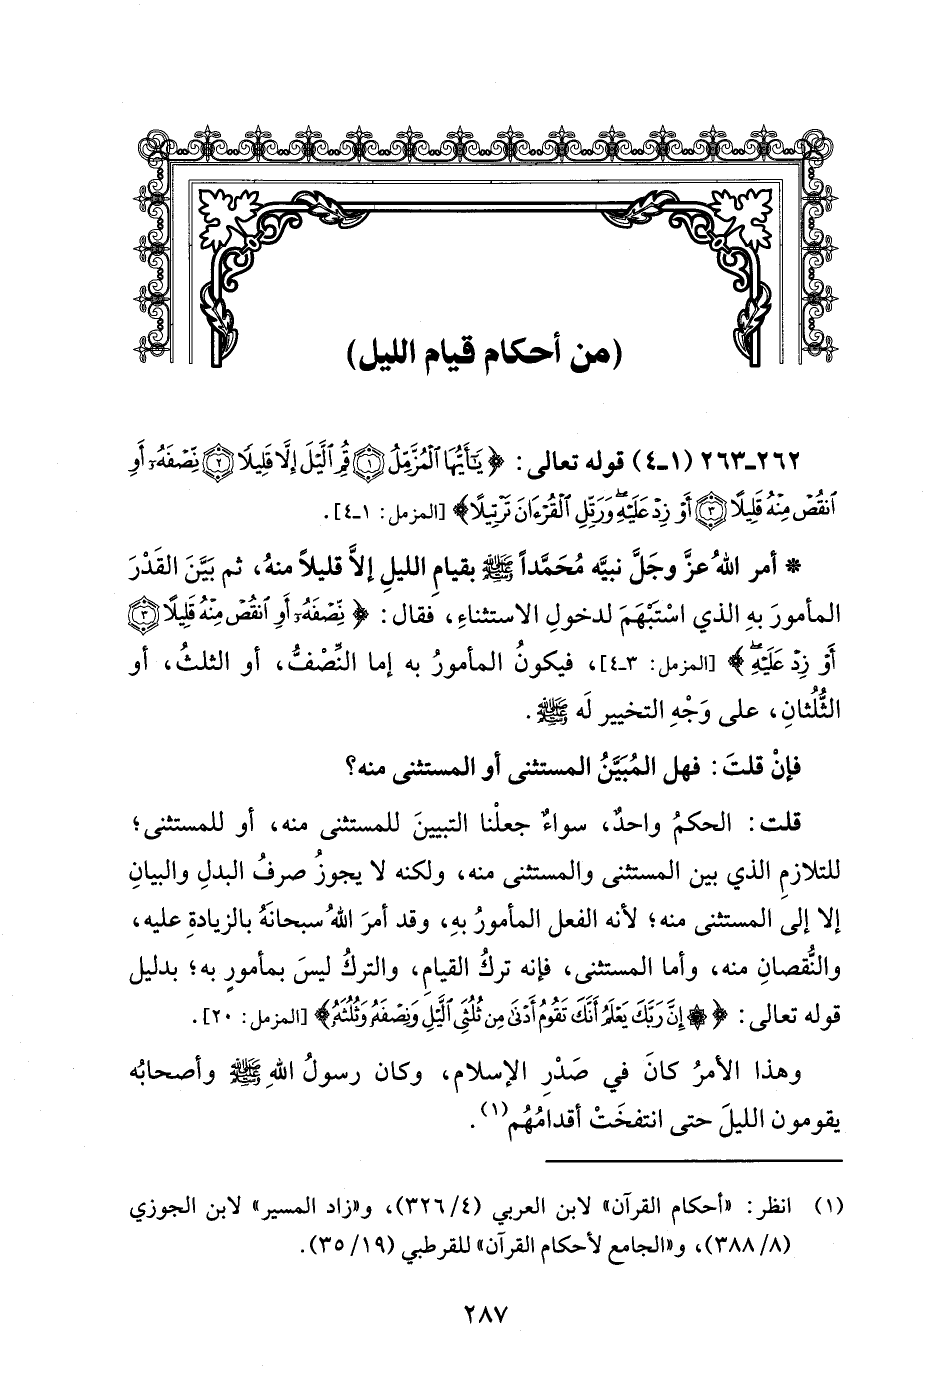 (من أحكام قيام الليل)
٢٦٢-٢٦٣ (١-٤) قوله تعالى: ﴿يَٰٓأَيُّهَا ٱلْمُزَّمِّلُ ۝١ قُمِ ٱلَّيْلَ إِلَّا قَلِيلًا ۝٢ نِّصْفَهُۥٓ أَوِ
ٱنقُصْ مِنْهُ قَلِيلًا ۝٣ أَوْ زِدْ عَلَيْهِ وَرَتِّلِ ٱلْقُرْءَانَ تَرْتِيلًا﴾ [المزمل: ١-٤].
* أمر اللهُ عزَّ وجَلَّ نبيَّه مُحَمَّداً ﷺ بقيامِ الليلِ إلاَّ قليلاً منهُ، ثم بيَّنَ القَدْرَ
المأمورَ بهِ الذي اسْتَبْهَمَ لدخولِ الاستثناءِ، فقال: ﴿نِّصْفَهُۥٓ أَوِ ٱنقُصْ مِنْهُ قَلِيلًا ۝٣
أَوْ زِدْ عَلَيْهِ﴾ [المزمل: ٣-٤]، فيكونُ المأمورُ به إما النِّصْفُ، أو الثلثُ، أو
الثُّلُثانِ، على وَجْهِ التخييرِ لَه ﷺ.
فإنْ قلتَ: فهل المُبَيَّنُ المستثنى أو المستثنى منه؟
قلت: الحكمُ واحدٌ، سواءٌ جعلْنا التبيينَ للمستثنى منه، أو للمستثنى؛
للتلازمِ الذي بين المستثنى والمستثنى منه، ولكنه لا يجوزُ صرفُ البدلِ والبيانِ
إلا إلى المستثنى منه؛ لأنه الفعل المأمورُ بهِ، وقد أمرَ اللهُ سبحانَهُ بالزيادةِ عليه،
والنُّقصانِ منه، وأما المستثنى، فإنه تركُ القيامِ، والتركُ ليسَ بمأمورٍ به؛ بدليل
قوله تعالى: ﴿۞ إِنَّ رَبَّكَ يَعْلَمُ أَنَّكَ تَقُومُ أَدْنَىٰ مِن ثُلُثَىِ ٱلَّيْلِ وَنِصْفَهُۥ وَثُلُثَهُۥ﴾ [المزمل: ٢٠].
وهذا الأمرُ كانَ في صَدْرِ الإسلام، وكان رسولُ اللهِ ﷺ وأصحابُه
يقومون الليلَ حتى انتفخَتْ أقدامُهُم(١).
(١) انظر: «أحكام القرآن» لابن العربي (٤/ ٣٢٦)، و«زاد المسير» لابن الجوزي
(٨/ ٣٨٨)، و«الجامع لأحكام القرآن» للقرطبي (١٩/ ٣٥).
٢٨٧